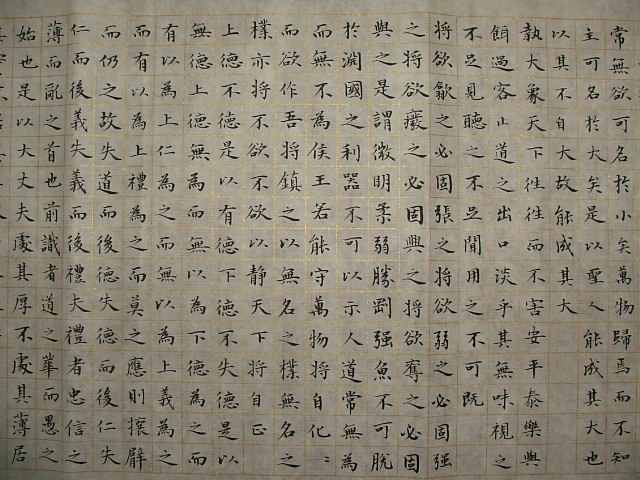 常無欲可名於小矣萬物歸焉而不知
主可名於大矣是以聖人能成其大也
以其不自大故能成其大
執大象天下往往而不害安平泰樂與
餌過客止道之出口淡乎其無味視之
不足見聽之不足聞用之不可既
將欲歙之必固張之將欲弱之必固强
之將欲癈之必固興之將欲奪之必固
與之是謂微明柔弱勝剛强魚不可脫
於淵國之利器不可以示人道常無為
而無不為侯王若能守萬物將自化〻
而欲作吾將鎮之以無名之樸無名之
樸亦將不欲不欲以静天下將自正
上德不德是以有德下德不失德是以
無德上德無為而無以為下德為之而
有以為上仁為之而無以為上義為之
而有以為上禮為之而莫之應則攘臂
而仍之故失道而後德失德而後仁失
仁而後義失義而後禮夫禮者忠信之
薄而亂之首也前識者道之華而愚之
始也是以大丈夫處其厚不處其薄居